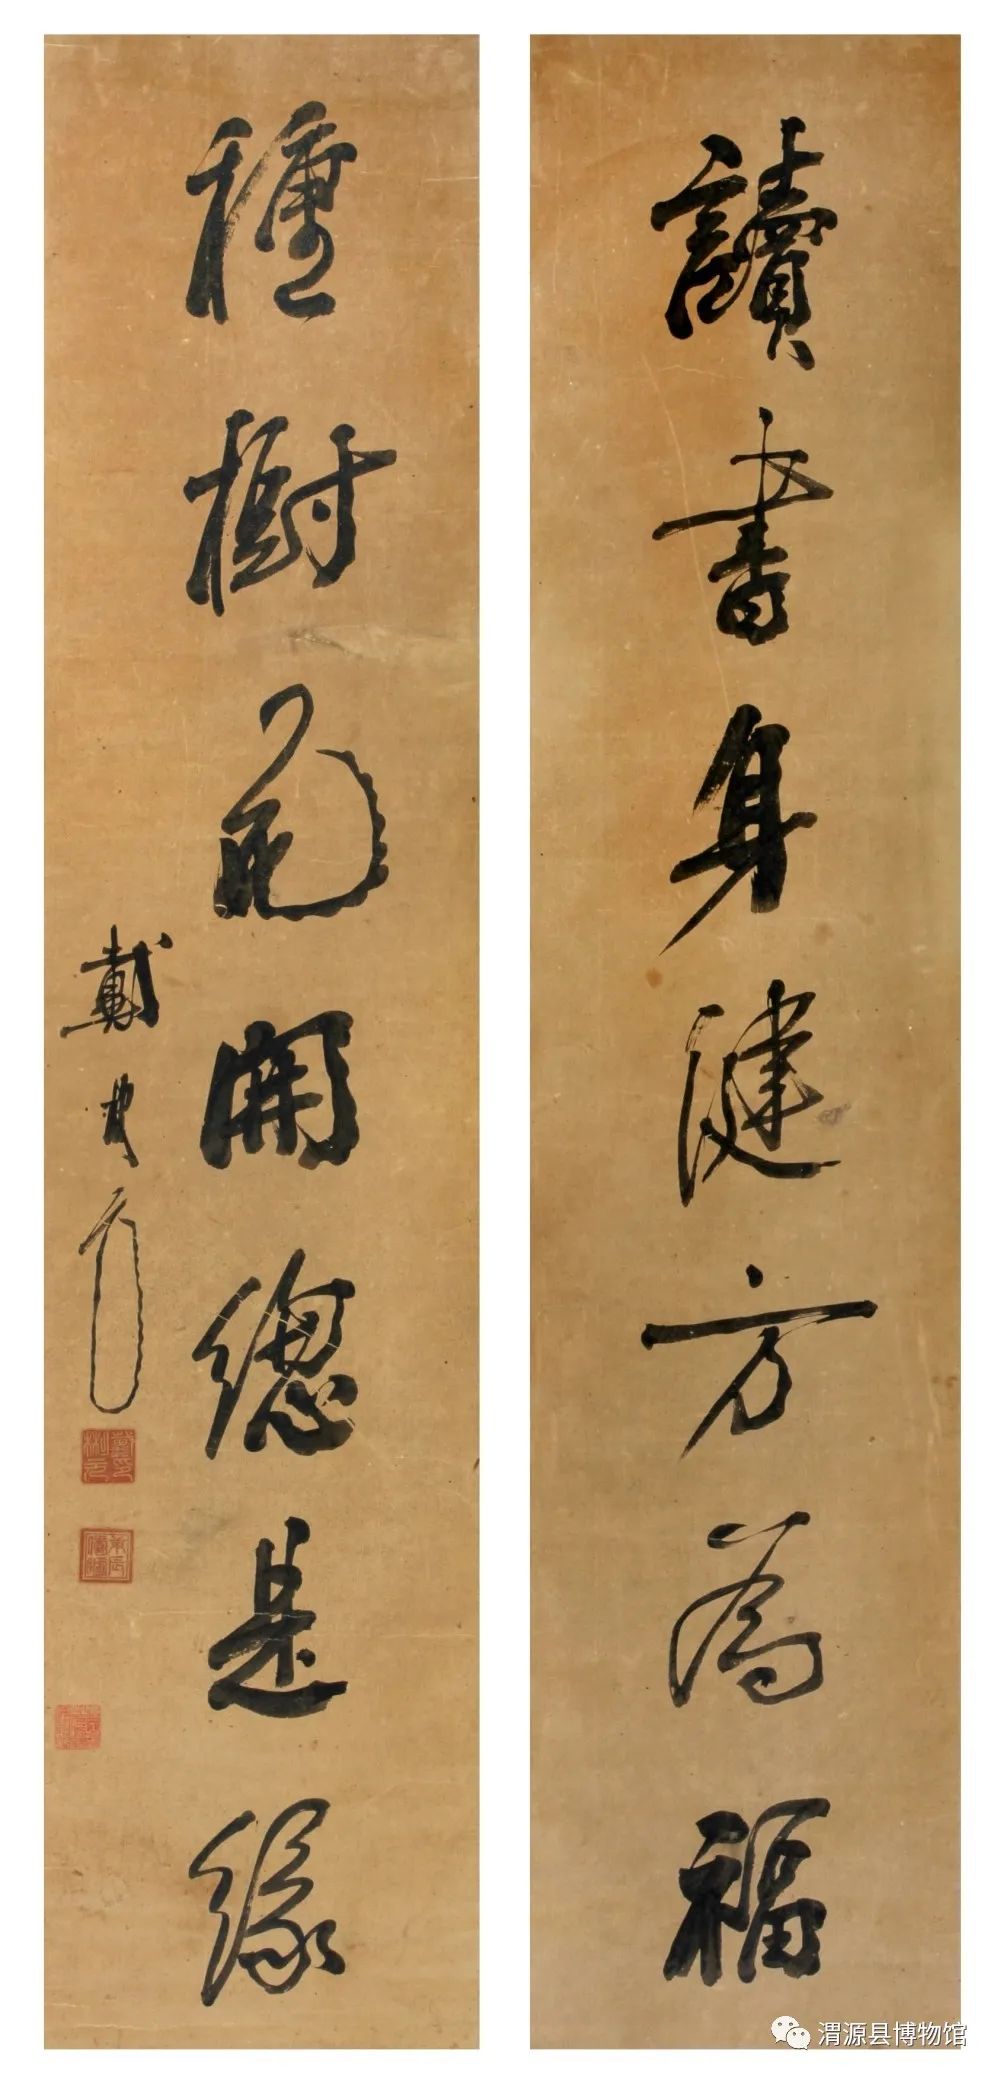 讀書身健方為福
種樹花開總是緣
戴彬元
渭源县博物馆